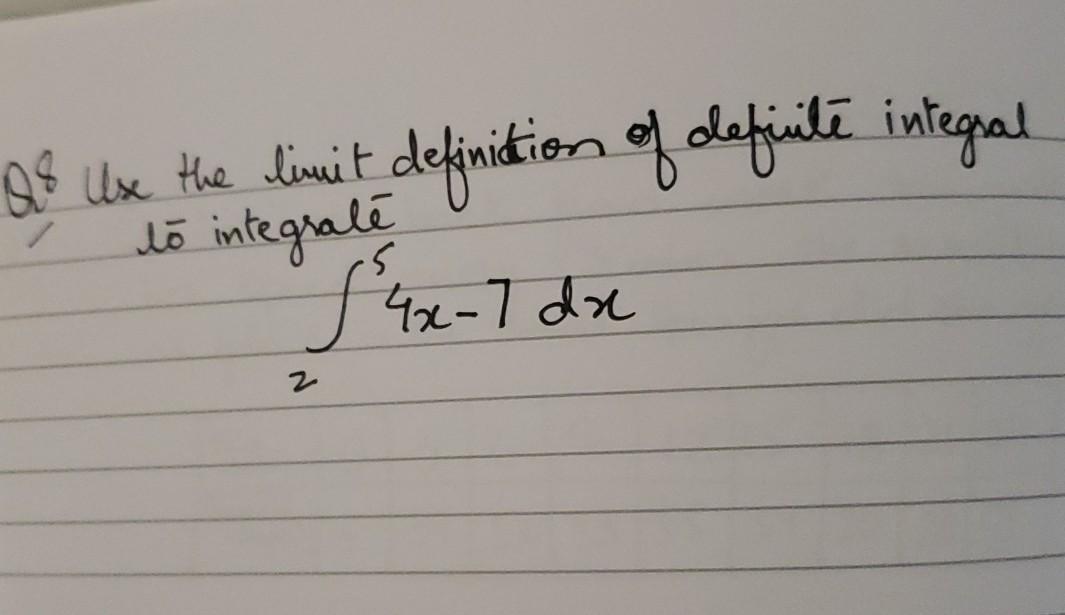 Q8 Use the limit definition of definite integral
to integrate
∫₂⁵ 4x-7 dx